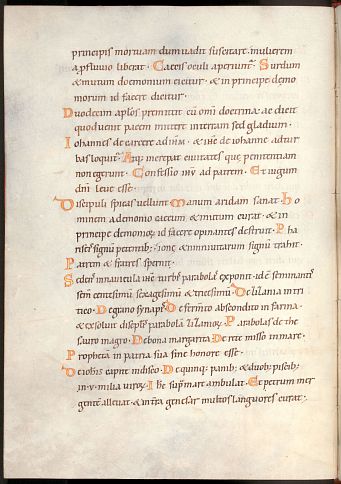 principis mortuam dum uadit suscitare. mulierem
a profluuio liberat. Caecis oculi aperiunt̃. Surdum
& mutum daemonium eicitur. & in principe demo
niorum id facere dicitur.
Duodecim aplos premittit cũ omi doctrina. ac dicit
quod uenit pacem mittere in terram sed gladium.
Iohannes de carcere ad ihm̃. & ihc̃ de iohanne ad tur
bas loquit̃. Atq; increpat ciuitates quę penitentiam
non egerunt. Confessio ihũ ad patrem. Et iugum
dnĩ leue esse.
Discipuli spicas uellunt. Manum aridam sanat. Ho
minem a demonio caecum & mutum curat. & in
principe demonioꝝ id facere opinantes destruit. Pha
risei signũ petentib; ionę & niniuitarum signũ trahit.
Patrem & fratres spernit.
Sedens in nauicula ihc̃ turbę parabolã exponit. id ẽ seminantẽ
sem centesimũ sexagesimũ & tricesimũ. De lilania in tri
tico. De grano synapis. De fermento abscondito in farina.
& exsoluit discipulis parabolã lilaniaoꝝ. Parabolas de the
sauro in agro. De bona margarita. De rete misso in mare.
Propheta in patria sua sine honore esse.
De iohis capite in disco. De quinq; panib; & duob; piscib;
in .v. milia uiroꝝ. Ihc̃ sup mare ambulat. Et petrum mer
gentẽ alleuat. & in terra genesar multos languores curat.